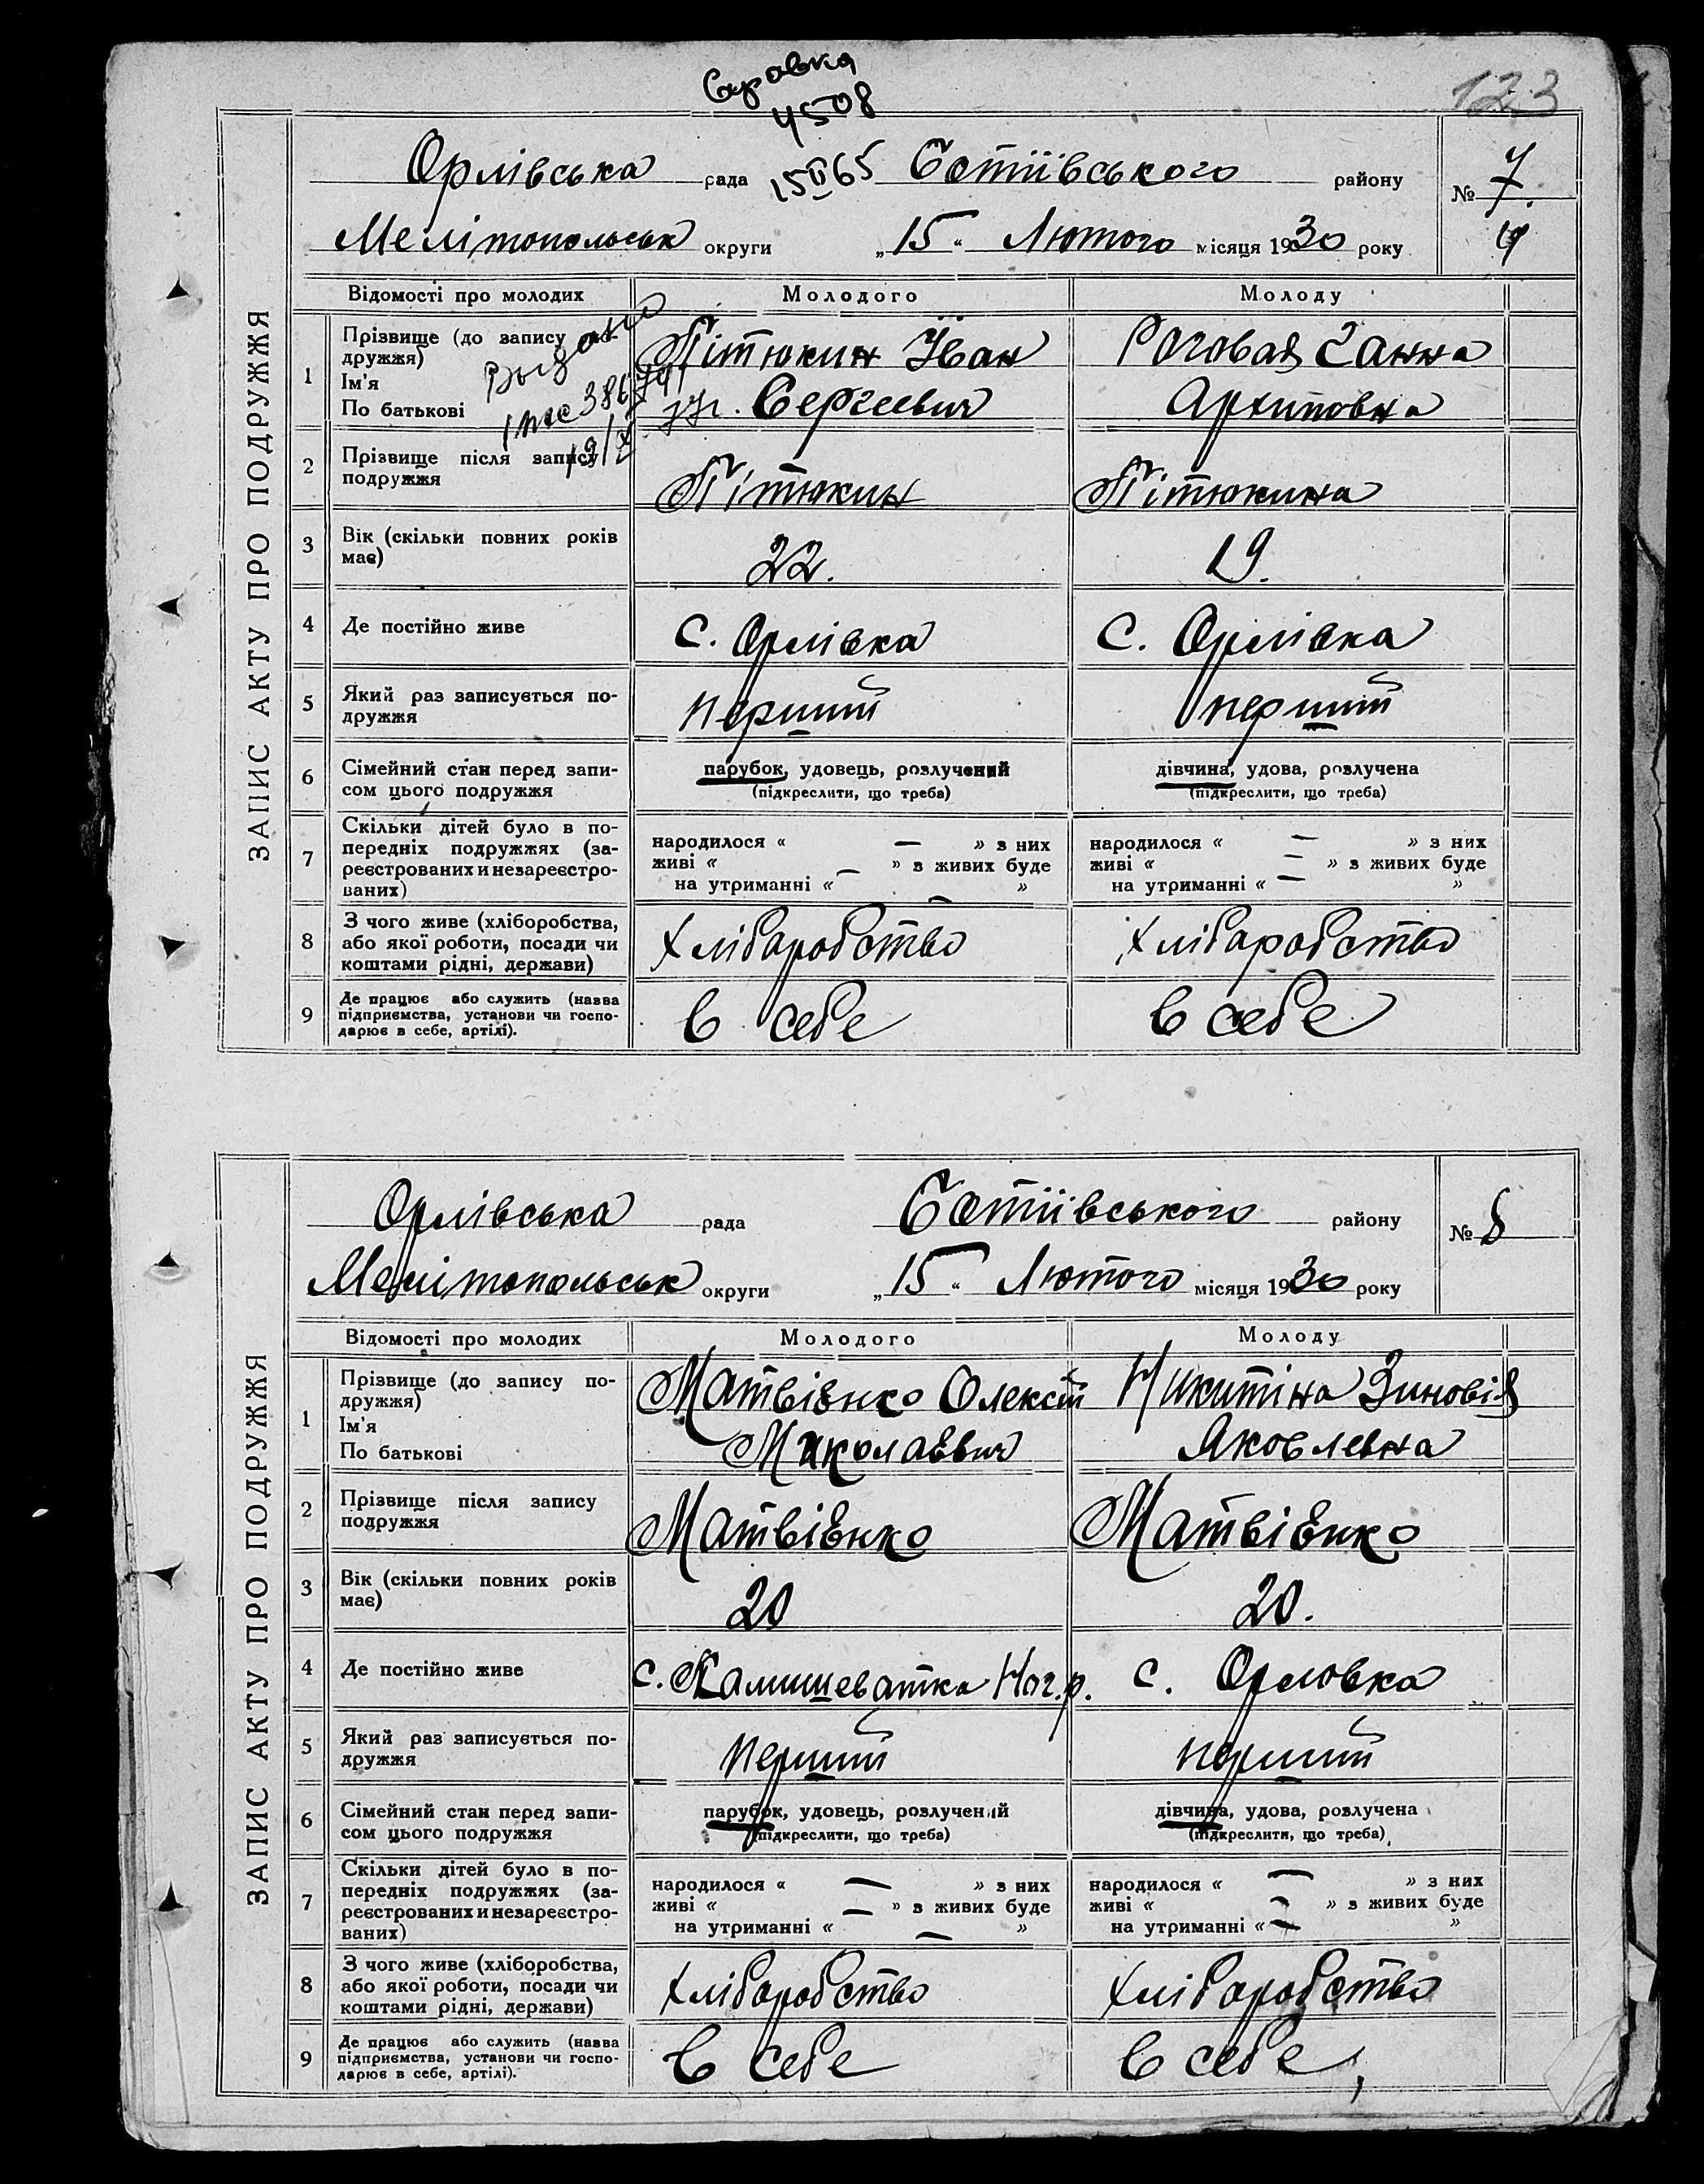 Справка
4508
15 II 65
123
Орлівська рада Ботіівського району
№ 7.
Мелітопольськ округи „15“ Лютого місяця 1930 року
ЗАПИС АКТУ ПРО ПОДРУЖЖЯ
Відомості про молодих Молодого Молоду
1 Прізвище (до запису по-
дружжя)
Ім'я
По батькові
Пітюкин Їван
Сергеевич
Роговая Ганна
Архиповна
Выдано
19/X
2 Прізвище після запису
подружжя
Пітюкин
Пітюкина
3 Вік (скільки повних років
має)
22.
19.
4 Де постійно живе
с. Орлівка
с. Орлівка
5 Який раз записується по-
дружжя
перший
перший
6 Сімейний стан перед запи-
сом цього подружжя
парубок, удовець, розлучений
(підкреслити, що треба)
дівчина, удова, розлучена
(підкреслити, що треба)
7 Скільки дітей було в по-
передніх подружжях (за-
реєстрованих и незареєстро-
ваних)
народилося « — » з них
живі « — » з живих буде
на утриманні « — »
народилося « — » з них
живі « — » з живих буде
на утриманні « — »
8 З чого живе (хліборобства,
або якої роботи, посади чи
коштами рідні, держави)
Хлібаробство
Хлібаробство
9 Де працює або служить (назва
підприємства, установи чи госпо-
дарює в себе, артілі).
в себе
в себе
Орлівська рада Ботіівського району
№ 8
Мелітопольськ округи „15“ Лютого місяця 1930 року
ЗАПИС АКТУ ПРО ПОДРУЖЖЯ
Відомості про молодих Молодого Молоду
1 Прізвище (до запису по-
дружжя)
Ім'я
По батькові
Матвієнко Олексій
Миколаєвич
Никитіна Зиновія
Яковлевна
2 Прізвище після запису
подружжя
Матвієнко
Матвієнко
3 Вік (скільки повних років
має)
20
20.
4 Де постійно живе
с. Камишеватка Ног. р.
с. Орловка
5 Який раз записується по-
дружжя
перший
перший
6 Сімейний стан перед запи-
сом цього подружжя
парубок, удовець, розлучений
(підкреслити, що треба)
дівчина, удова, розлучена
(підкреслити, що треба)
7 Скільки дітей було в по-
передніх подружжях (за-
реєстрованих и незареєстро-
ваних)
народилося « — » з них
живі « — » з живих буде
на утриманні « — »
народилося « — » з них
живі « — » з живих буде
на утриманні « — »
8 З чого живе (хліборобства,
або якої роботи, посади чи
коштами рідні, держави)
Хлібаробство
Хлібаробство
9 Де працює або служить (назва
підприємства, установи чи госпо-
дарює в себе, артілі).
в себе
в себе,